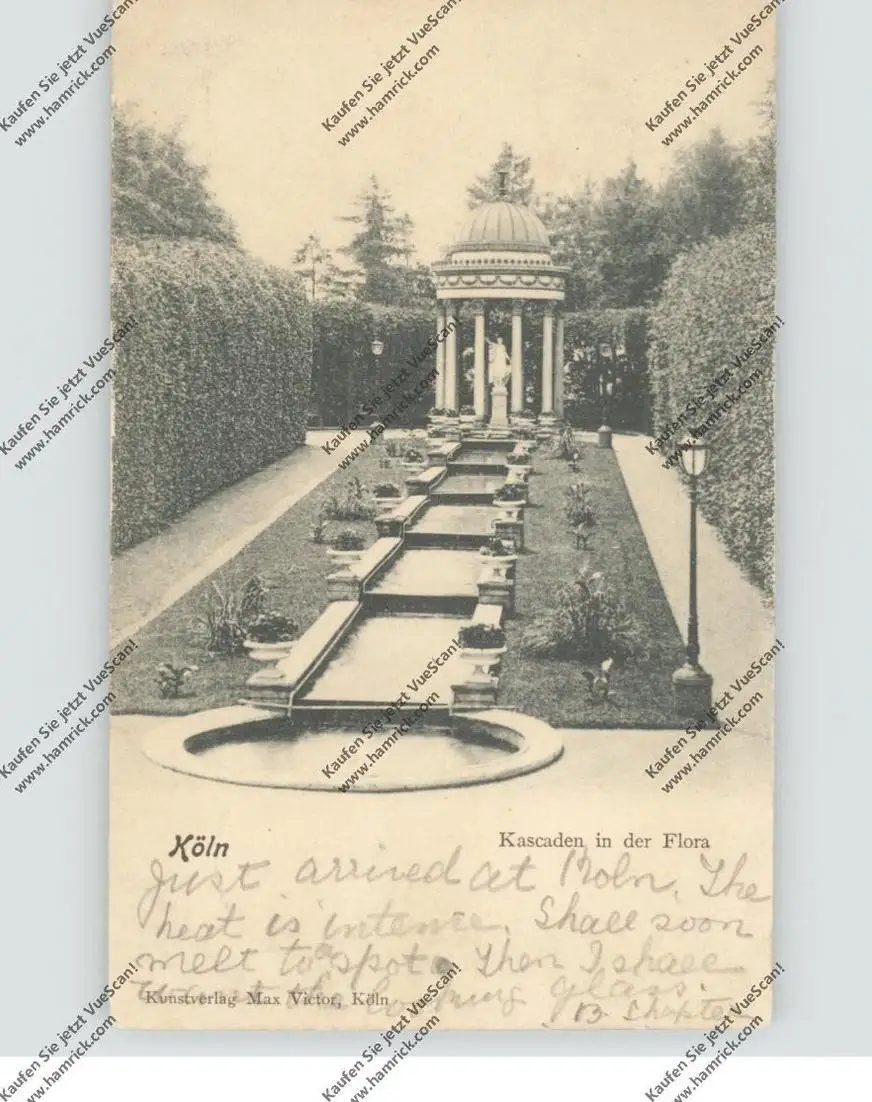 Kaufen Sie jetzt VueScan!
www.hamrick.com
Kaufen Sie jetzt VueScan!
www.hamrick.com
Kaufen Sie jetzt VueScan!
www.hamrick.com
Kaufen Sie jetzt VueScan!
www.hamrick.com
Kaufen Sie jetzt VueScan!
www.hamrick.com
Kaufen Sie jetzt VueScan!
www.hamrick.com
Kaufen Sie jetzt VueScan!
www.hamrick.com
Kaufen Sie jetzt VueScan!
www.hamrick.com
Kaufen Sie jetzt VueScan!
www.hamrick.com
Köln
Kascaden in der Flora
Just arrived at Koln. The
heat is intense. Shall soon
melt to a spot. Then I shall
the looking glass.
Kunstverlag Max Victor, Köln
B
Kaufen Sie jetzt VueScan!
www.hamrick.com
Kaufen Sie jetzt VueScan!
www.hamrick.com
Kaufen Sie jetzt VueScan!
www.hamrick.com